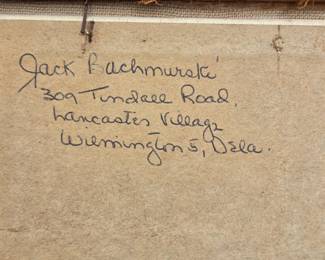 Jack Bachmurski
309 Tindall Road,
Lancaster Village
Wilmington 5, Dela.